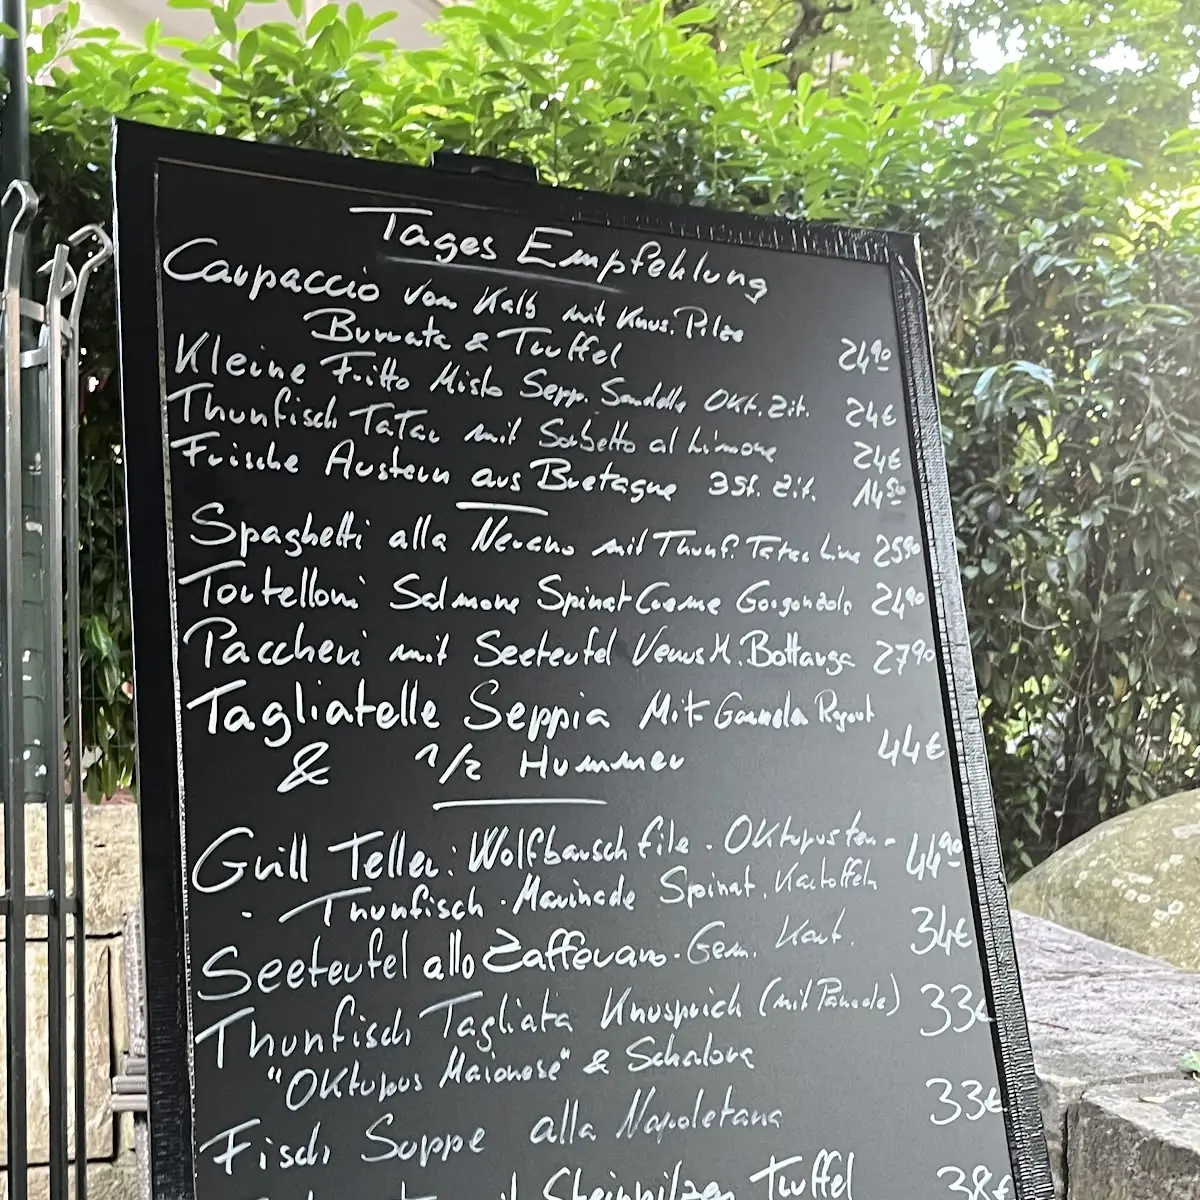 Tages Empfehlung
Carpaccio vom Kalb mit Knus. Pilze
Burrata & Trüffel 24,90
Kleine Fritto Misto Sepp. Sardelle Okt. Zit. 24€
Thunfisch TaTar mit Sorbetto al Limone 24€
Frische Austern aus Bretagne 3 St. Zit. 14,50
Spaghetti alla Nerano mit Thunf. Tatar Lime 25,90
Tortelloni Salmone Spinat Creme Gorgonzola 24,90
Paccheri mit Seeteufel Venus M. Bottarga 27,90
Tagliatelle Seppia Mit Ragout
& 1/2 Hummer 44€
Grill Teller: Wolfbarsch file. Oktopusten- 44,90
. Thunfisch. Marinade Spinat. Kartoffeln
Seeteufel allo Zafferano. Gem. Kart. 34€
Thunfisch Tagliata Knusprich (mit Panade) 33€
"Oktopus Maionese" & Schalove
Fisch Suppe alla Napoletana 33€
Steinpilzen Trüffel 38€